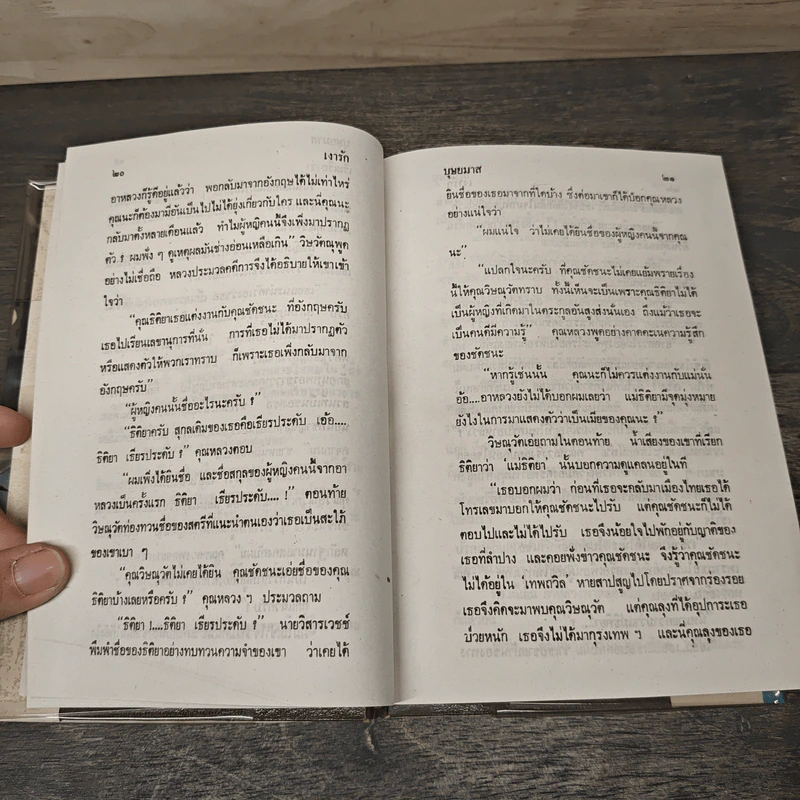 เงารัก
๒๐
อาหลวงก็รู้ดีอยู่แล้วว่า พอกลับมาจากอังกฤษได้ไม่เท่าไหร่
คุณนะก็ต้องมามีอันเป็นไปไม่ได้ยุ่งเกี่ยวกับใคร และนี่คุณนะ
กลับมาตั้งหลายเดือนแล้ว ทำไมผู้หญิงคนนี้จึงเพิ่งมาปรากฏ
ตัว ? ผมฟัง ๆ ดูเหตุผลมันช่างอ่อนเหลือเกิน” วิษวัตณุพูด
อย่างไม่เชื่อถือ หลวงประมวลคดีการจึงได้อธิบายให้เขาเข้า
ใจว่า
“คุณธิติยาเธอแต่งงานกับคุณชัดชนะ ที่อังกฤษครับ
เธอไปเรียนเลขานุการที่นั่น การที่เธอไม่ได้มาปรากฏตัว
หรือแสดงตัวให้พวกเราทราบ ก็เพราะเธอเพิ่งกลับมาจาก
อังกฤษครับ”
“ผู้หญิงคนนั้นชื่ออะไรนะครับ ?”
“ธิติยาครับ สุกลเดิมของเธอคือเธียรประดับ เอ้อ....
ธิติยา เธียรประดับ ?” คุณหลวงตอบ
“ผมเพิ่งได้ยินชื่อ และชื่อสกุลของผู้หญิงคนนี้จากอา
หลวงเป็นครั้งแรก ธิติยา เธียรประดับ.... !” ตอนท้าย
วิษณุวัตท่องทวนชื่อของสตรีที่แนะนำตนเองว่าเธอเป็นสะใภ้
ของเขาเบา ๆ
“คุณวิษณุวัตไม่เคยได้ยิน คุณชัดชนะเอ่ยชื่อของคุณ
ธิติยาบ้างเลยหรือครับ ?” คุณหลวง ฯ ประมวลถาม
“ธิติยา !....ธิติยา เธียรประดับ ?” นายวิสารเวชช์
พึมพำชื่อของธิติยาอย่างทบทวนความจำของเขา ว่าเคยได้
บุษยมาส
๒๑
ยินชื่อของเธอมาจากที่ใดบ้าง ซึ่งต่อมาเขาก็ได้บอกคุณหลวง
อย่างแน่ใจว่า
“ผมแน่ใจ ว่าไม่เคยได้ยินชื่อของผู้หญิงคนนี้จากคุณ
นะ”
“แปลกใจนะครับ ที่คุณชัดชนะไม่เคยแย้มพรายเรื่อง
นี้ให้คุณวิษณุวัตทราบ ทั้งนี้เห็นจะเป็นเพราะคุณธิติยาไม่ได้
เป็นผู้หญิงที่เกิดมาในตระกูลอันสูงส่งนั่นเอง ถึงแม้ว่าเธอจะ
เป็นคนดีมีความรู้” คุณหลวงพูดอย่างคาดคะเนความรู้สึก
ของชัดชนะ
“หากรู้เช่นนั้น คุณนะก็ไม่ควรแต่งงานกับแม่นั่น
อ้อ....อาหลวงยังไม่ได้บอกผมเลยว่า แม่ธิติยามีจุดมุ่งหมาย
ยังไงในการมาแสดงตัวว่าเป็นเมียของคุณนะ ?”
วิษณุวัตเอ่ยถามในตอนท้าย น้ำเสียงของเขาที่เรียก
ธิติยาว่า ‘แม่ธิติยา’ นั้นบอกความดูแคลนอยู่ในที
“เธอบอกผมว่า ก่อนที่เธอจะกลับมาเมืองไทยเธอได้
โทรเลขมาบอกให้คุณชัดชนะไปรับ แต่คุณชัดชนะก็ไม่ได้
ตอบไปและไม่ได้ไปรับ เธอจึงน้อยใจไปพักอยู่กับญาติของ
เธอที่ลำปาง และคอยฟังข่าวคุณชัดชนะ จึงรู้ว่าคุณชัดชนะ
ไม่ได้อยู่ใน ‘เทพถวิล’ หายสาปสูญไปโดยปราศจากร่องรอย
เธอจึงคิดจะมาพบคุณวิษณุวัต แต่คุณลุงที่ได้อุปการะเธอ
ป่วยหนัก เธอจึงไม่ได้มากรุงเทพ ฯ และนี่คุณลุงของเธอ